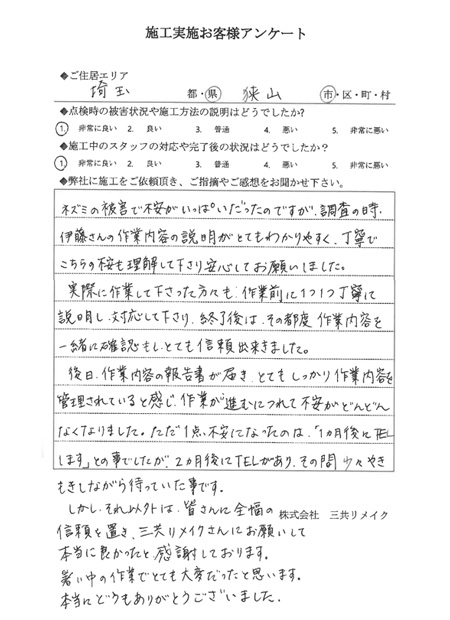 施工実施お客様アンケート
◆ご住居エリア
埼玉 都・県 狭山 市・区・町・村
◆点検時の被害状況や施工方法の説明はどうでしたか?
1. 非常に良い 2. 良い 3. 普通 4. 悪い 5. 非常に悪い
◆施工中のスタッフの対応や完了後の状況はどうでしたか?
1. 非常に良い 2. 良い 3. 普通 4. 悪い 5. 非常に悪い
◆弊社に施工をご依頼頂き、ご指摘やご感想をお聞かせ下さい。
ネズミの被害で不安がいっぱいだったのですが、調査の時、
伊藤さんの作業内容の説明がとてもわかりやすく、丁寧で
こちらの不安も理解して下さり安心してお願いしました。
実際に作業して下さった方々も、作業前に1つ1つ丁寧に
説明し、対応して下さり、終了後は、その都度作業内容を
一緒に確認もし、とても信頼出来ました。
後日、作業内容の報告書が届き、とてもしっかり作業内容を
管理されていると感じ、作業が進むにつれて不安がどんどん
なくなりました。ただ1点、不安になったのは、「1ヵ月後にTEL
します」との事でしたが、2ヵ月後にTELがあり、その間少々やき
もきしながら待っていた事です。
しかし、それ以外は、皆さんに全幅の 株式会社 三共リメイク
信頼を置き、三共リメイクさんにお願いして
本当に良かったと感謝しております。
暑い中の作業でとても大変だったと思います。
本当にどうもありがとうございました。